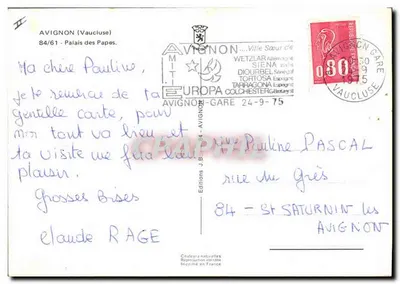 AVIGNON (Vaucluse)
84/61 - Palais des Papes.
Ma chère Pauline,
je te remercie de ta
gentille carte, pour
moi tout va bien et
ta visite me fera
plaisir.
Grosses Bises
Claude RAGE
AMITIE
AVIGNON ... Ville Sœur de
WETZLAR
SIENA
DIOURBEL Sénégal
TORTOSA Espagne
TARRAGONA Espagne
EUROPA COLCHESTER
AVIGNON-GARE 24-9-75
0.80
AVIGNON GARE
1975
VAUCLUSE
Editions J.B.
Pauline PASCAL
rue du Grès
84 - St SATURNIN les
AVIGNON
Couleurs naturelles
Reproduction interdite
Imprimé en France